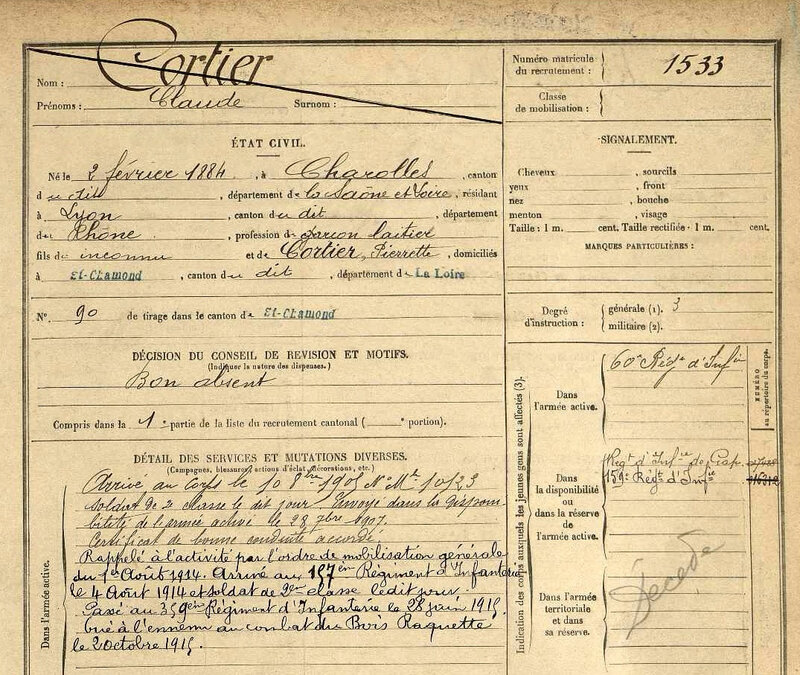 Nom : Cortier
Prénoms : Claude Surnom :
ÉTAT CIVIL.
Né le 2 février 1884, à Charolles, canton
du dit, département de la Saône et Loire, résidant
à Lyon, canton du dit, département
du Rhône, profession de garçon laitier
fils de inconnu et de Cortier, Pierrette, domiciliés
à St-Chamond, canton du dit, département de La Loire
N° 90 de tirage dans le canton de St-Chamond
DÉCISION DU CONSEIL DE REVISION ET MOTIFS.
(Indiquer la nature des dispenses.)
Bon absent
Compris dans la 1e partie de la liste du recrutement cantonal ( e portion).
DÉTAIL DES SERVICES ET MUTATIONS DIVERSES.
(Campagnes, blessures, actions d'éclat, décorations, etc.)
Dans l'armée active.
Arrivé au Corps le 10 8bre 1905 N° Mle 10123
Soldat de 2e classe le dit jour. Envoyé dans la disponi
bilité de l'armée active le 28 7bre 1907.
Certificat de bonne conduite accordé.
Rappelé à l'activité par l'ordre de mobilisation générale
du 1er Août 1914. Arrivé au 157ème Régiment d'Infanterie
le 4 Août 1914 et soldat de 2me classe le dit jour.
Passé au 359ème Régiment d'Infanterie le 28 juin 1915
tué à l'ennemi au combat du Bois Raquette
le 2 Octobre 1915.
Numéro matricule
du recrutement : 1533
Classe
de mobilisation :
SIGNALEMENT.
Cheveux , sourcils
yeux , front
nez , bouche
menton , visage
Taille : 1 m. cent. Taille rectifiée : 1 m. cent.
MARQUES PARTICULIÈRES :
Degré
d'instruction :
générale (1). 3
militaire (2).
Indication des corps auxquels les jeunes gens sont affectés (3).
NUMÉRO
au répertoire du corps.
Dans
l'armée active.
60e Régt d'Infie
Dans
la disponibilité
ou dans la réserve
de l'armée active.
Regt d'Infie de Gap.
159e Régt d'Infie
Dans l'armée
territoriale
et dans
sa réserve.
Décédé